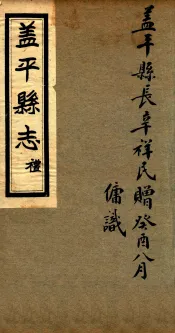 盖平縣長辛祥民贈癸酉八月
傭識
盖平縣志 禮